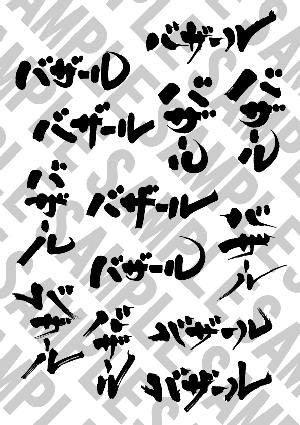 バザール
バザール
バザール
バザール
バザール
バザール
バザール
バザール
バザール
バザール
バザール
バザール
バザール
SAMPLE